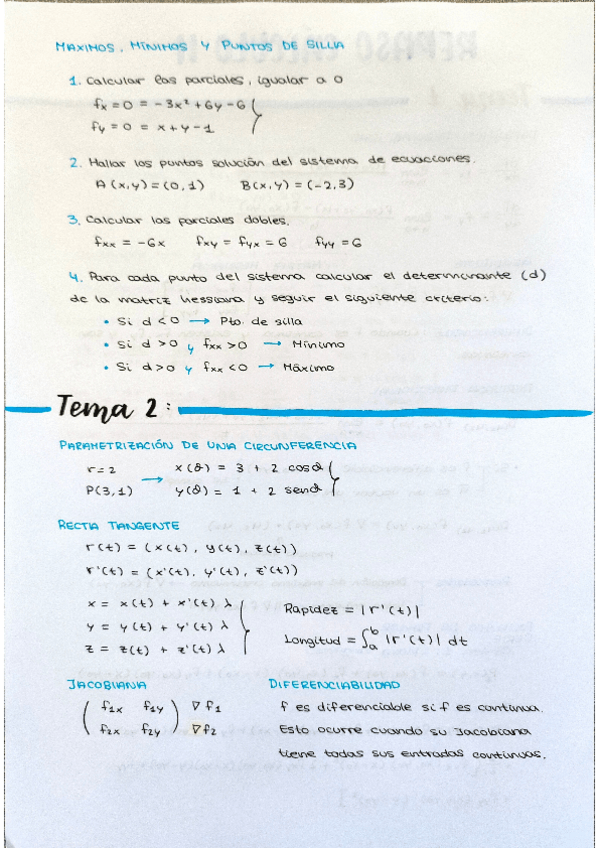 MAXIMOS, MÍNIMOS Y PUNTOS DE SILLA
1. Calcular las parciales, igualar a 0
fx = 0 = -3x² + 6y - 6
fy = 0 = x + y - 1
2. Hallar los puntos solución del sistema de ecuaciones.
A(x,y) = (0,1) B(x,y) = (-2,3)
3. Calcular las parciales dobles.
fxx = -6x fxy = fyx = 6 fyy = 6
4. Para cada punto del sistema calcular el determinante (d)
de la matriz hessiana y seguir el siguiente criterio:
• Si d < 0 → Pto. de silla
• Si d > 0 y fxx > 0 → Mínimo
• Si d > 0 y fxx < 0 → Máximo
Tema 2:
PARAMETRIZACIÓN DE UNA CIRCUNFERENCIA
r = 2 x(θ) = 3 + 2 cosθ
P(3,1) → y(θ) = 1 + 2 senθ
RECTA TANGENTE
r(t) = (x(t), y(t), z(t))
r'(t) = (x'(t), y'(t), z'(t))
x = x(t) + x'(t) λ
y = y(t) + y'(t) λ
z = z(t) + z'(t) λ
Rapidez = |r'(t)|
Longitud = ∫ₐᵇ |r'(t)| dt
JACOBIANA
( f1x f1y ) ∇f1
( f2x f2y ) ∇f2
DIFERENCIABILIDAD
f es diferenciable si f es continua.
Esto ocurre cuando su Jacobiana
tiene todas sus entradas continuas.